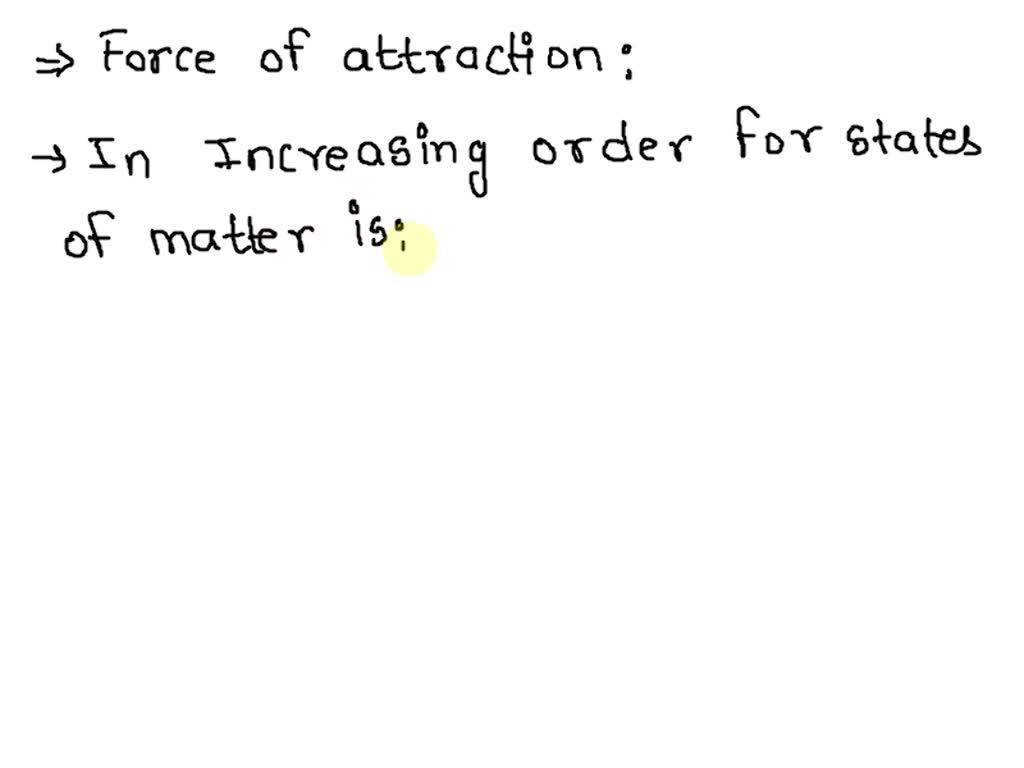 ⇒ Force of attraction:
→ In Increasing order for states
of matter is: